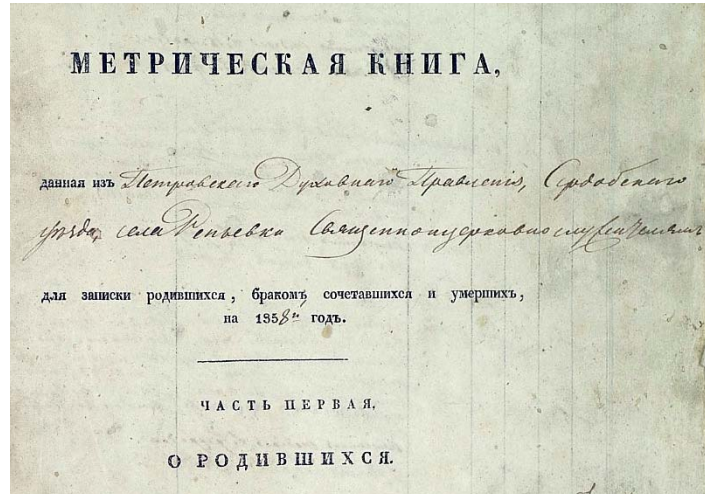 МЕТРИЧЕСКАЯ КНИГА,
данная изъ Петровскаго Духовнаго Правленія, Сердобскаго
уѣзда, села Репьевки Священноцерковнослужителямъ
для записки родившихся, бракомъ сочетавшихся и умершихъ,
на 1858й годъ.
ЧАСТЬ ПЕРВАЯ.
О РОДИВШИХСЯ.